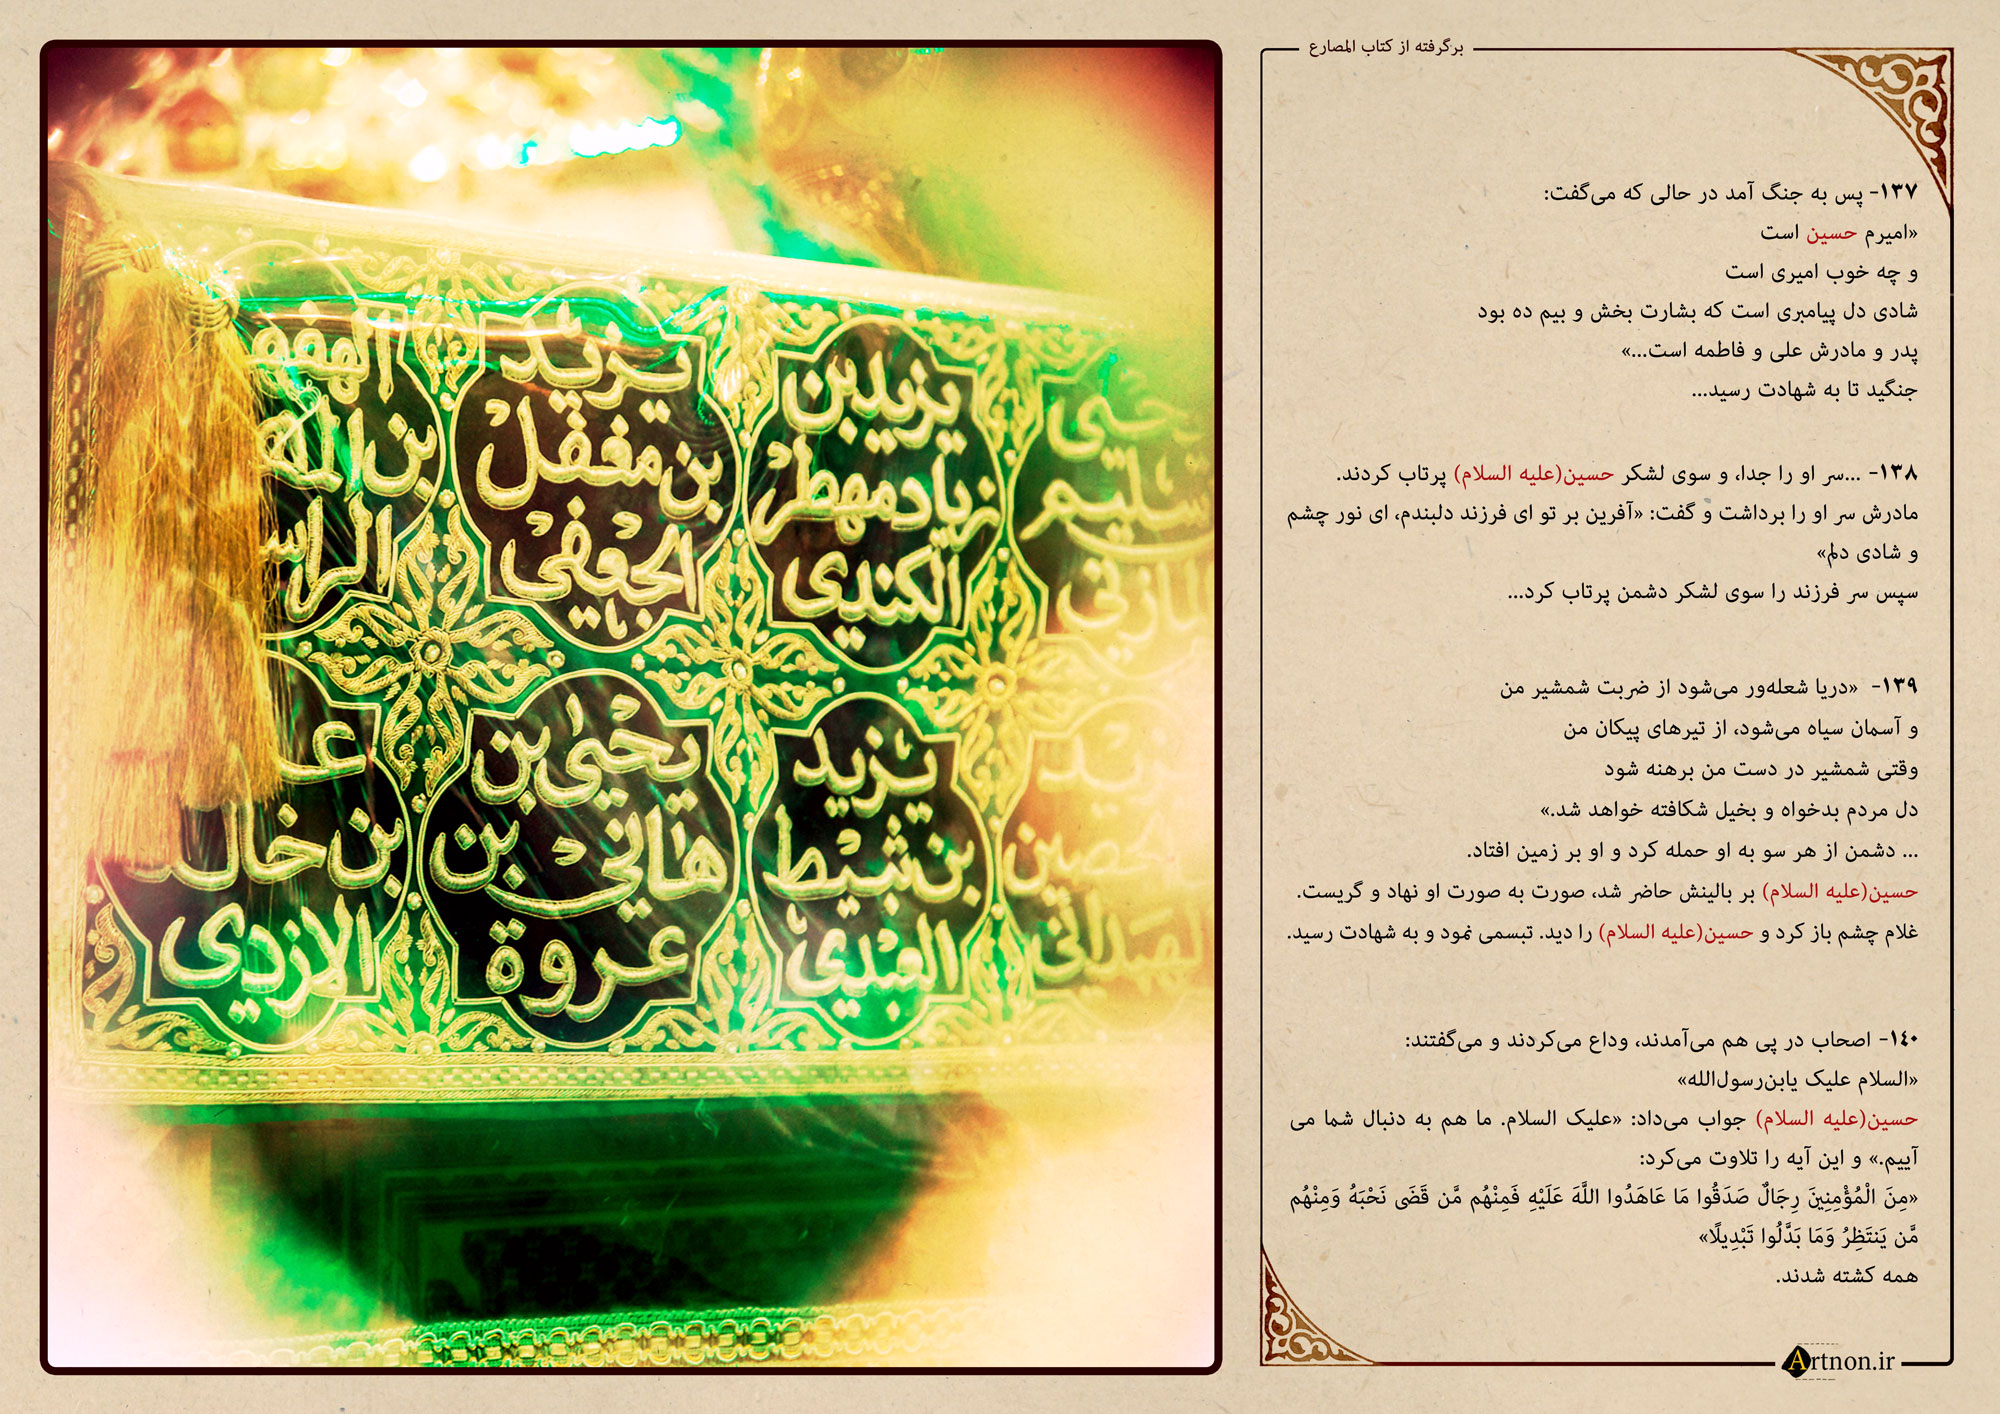 برگرفته از کتاب المصارع
۱۳۷- پس به جنگ آمد در حالی که می‌گفت:
«امیرم حسین است
و چه خوب امیری است
شادی دل پیامبری است که بشارت بخش و بیم ده بود
پدر و مادرش علی و فاطمه است...»
جنگید تا به شهادت رسید...
۱۳۸- ...سر او را جدا، و سوی لشکر حسین(علیه السلام) پرتاب کردند.
مادرش سر او را برداشت و گفت: «آفرین بر تو ای فرزند دلبندم، ای نور چشم
و شادی دلم»
سپس سر فرزند را سوی لشکر دشمن پرتاب کرد...
۱۳۹- «دریا شعله‌ور می‌شود از ضربت شمشیر من
و آسمان سیاه می‌شود، از تیرهای پیکان من
وقتی شمشیر در دست من برهنه شود
دل مردم بدخواه و بخیل شکافته خواهد شد.»
... دشمن از هر سو به او حمله کرد و او بر زمین افتاد.
حسین(علیه السلام) بر بالینش حاضر شد، صورت به صورت او نهاد و گریست.
غلام چشم باز کرد و حسین(علیه السلام) را دید. تبسمی نمود و به شهادت رسید.
۱٤۰- اصحاب در پی هم می‌آمدند، وداع می‌کردند و می‌گفتند:
«السلام علیک یابن‌رسول‌الله»
حسین(علیه السلام) جواب می‌داد: «علیک السلام. ما هم به دنبال شما می
آییم.» و این آیه را تلاوت می‌کرد:
«مِنَ الْمُؤْمِنِينَ رِجَالٌ صَدَقُوا مَا عَاهَدُوا اللَّهَ عَلَيْهِ فَمِنْهُم مَّن قَضَى نَحْبَهُ وَمِنْهُم
مَّن يَنتَظِرُ وَمَا بَدَّلُوا تَبْدِيلًا»
همه کشته شدند.
Artnon.ir
يحيى
سليم
المازني
يزيد بن
زياد مهطر
الكندي
يزيد
بن مغفل
الجعفي
بن
يزيد
الحصين
الهمداني
يزيد
بن ثبيط
العبدي
يحيى بن
هاني بن
عروة
بن خالد
الازدي